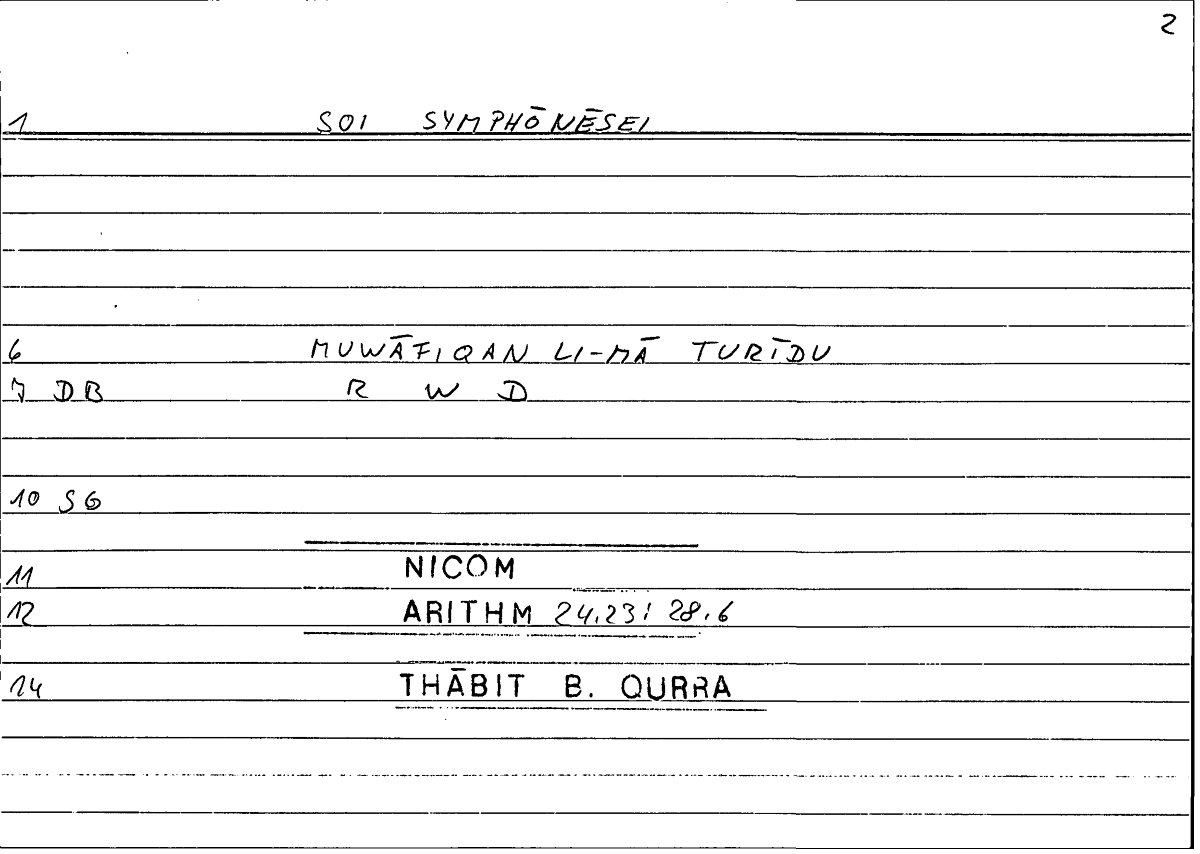 2
1 SOI SYMPHŌNĒSEI
6 MUWĀFIQAN LI-MĀ TURĪDU
7 DB R W D
10 SG
11 NICOM
12 ARITHM 24.23: 28.6
14 THĀBIT B. QURRA